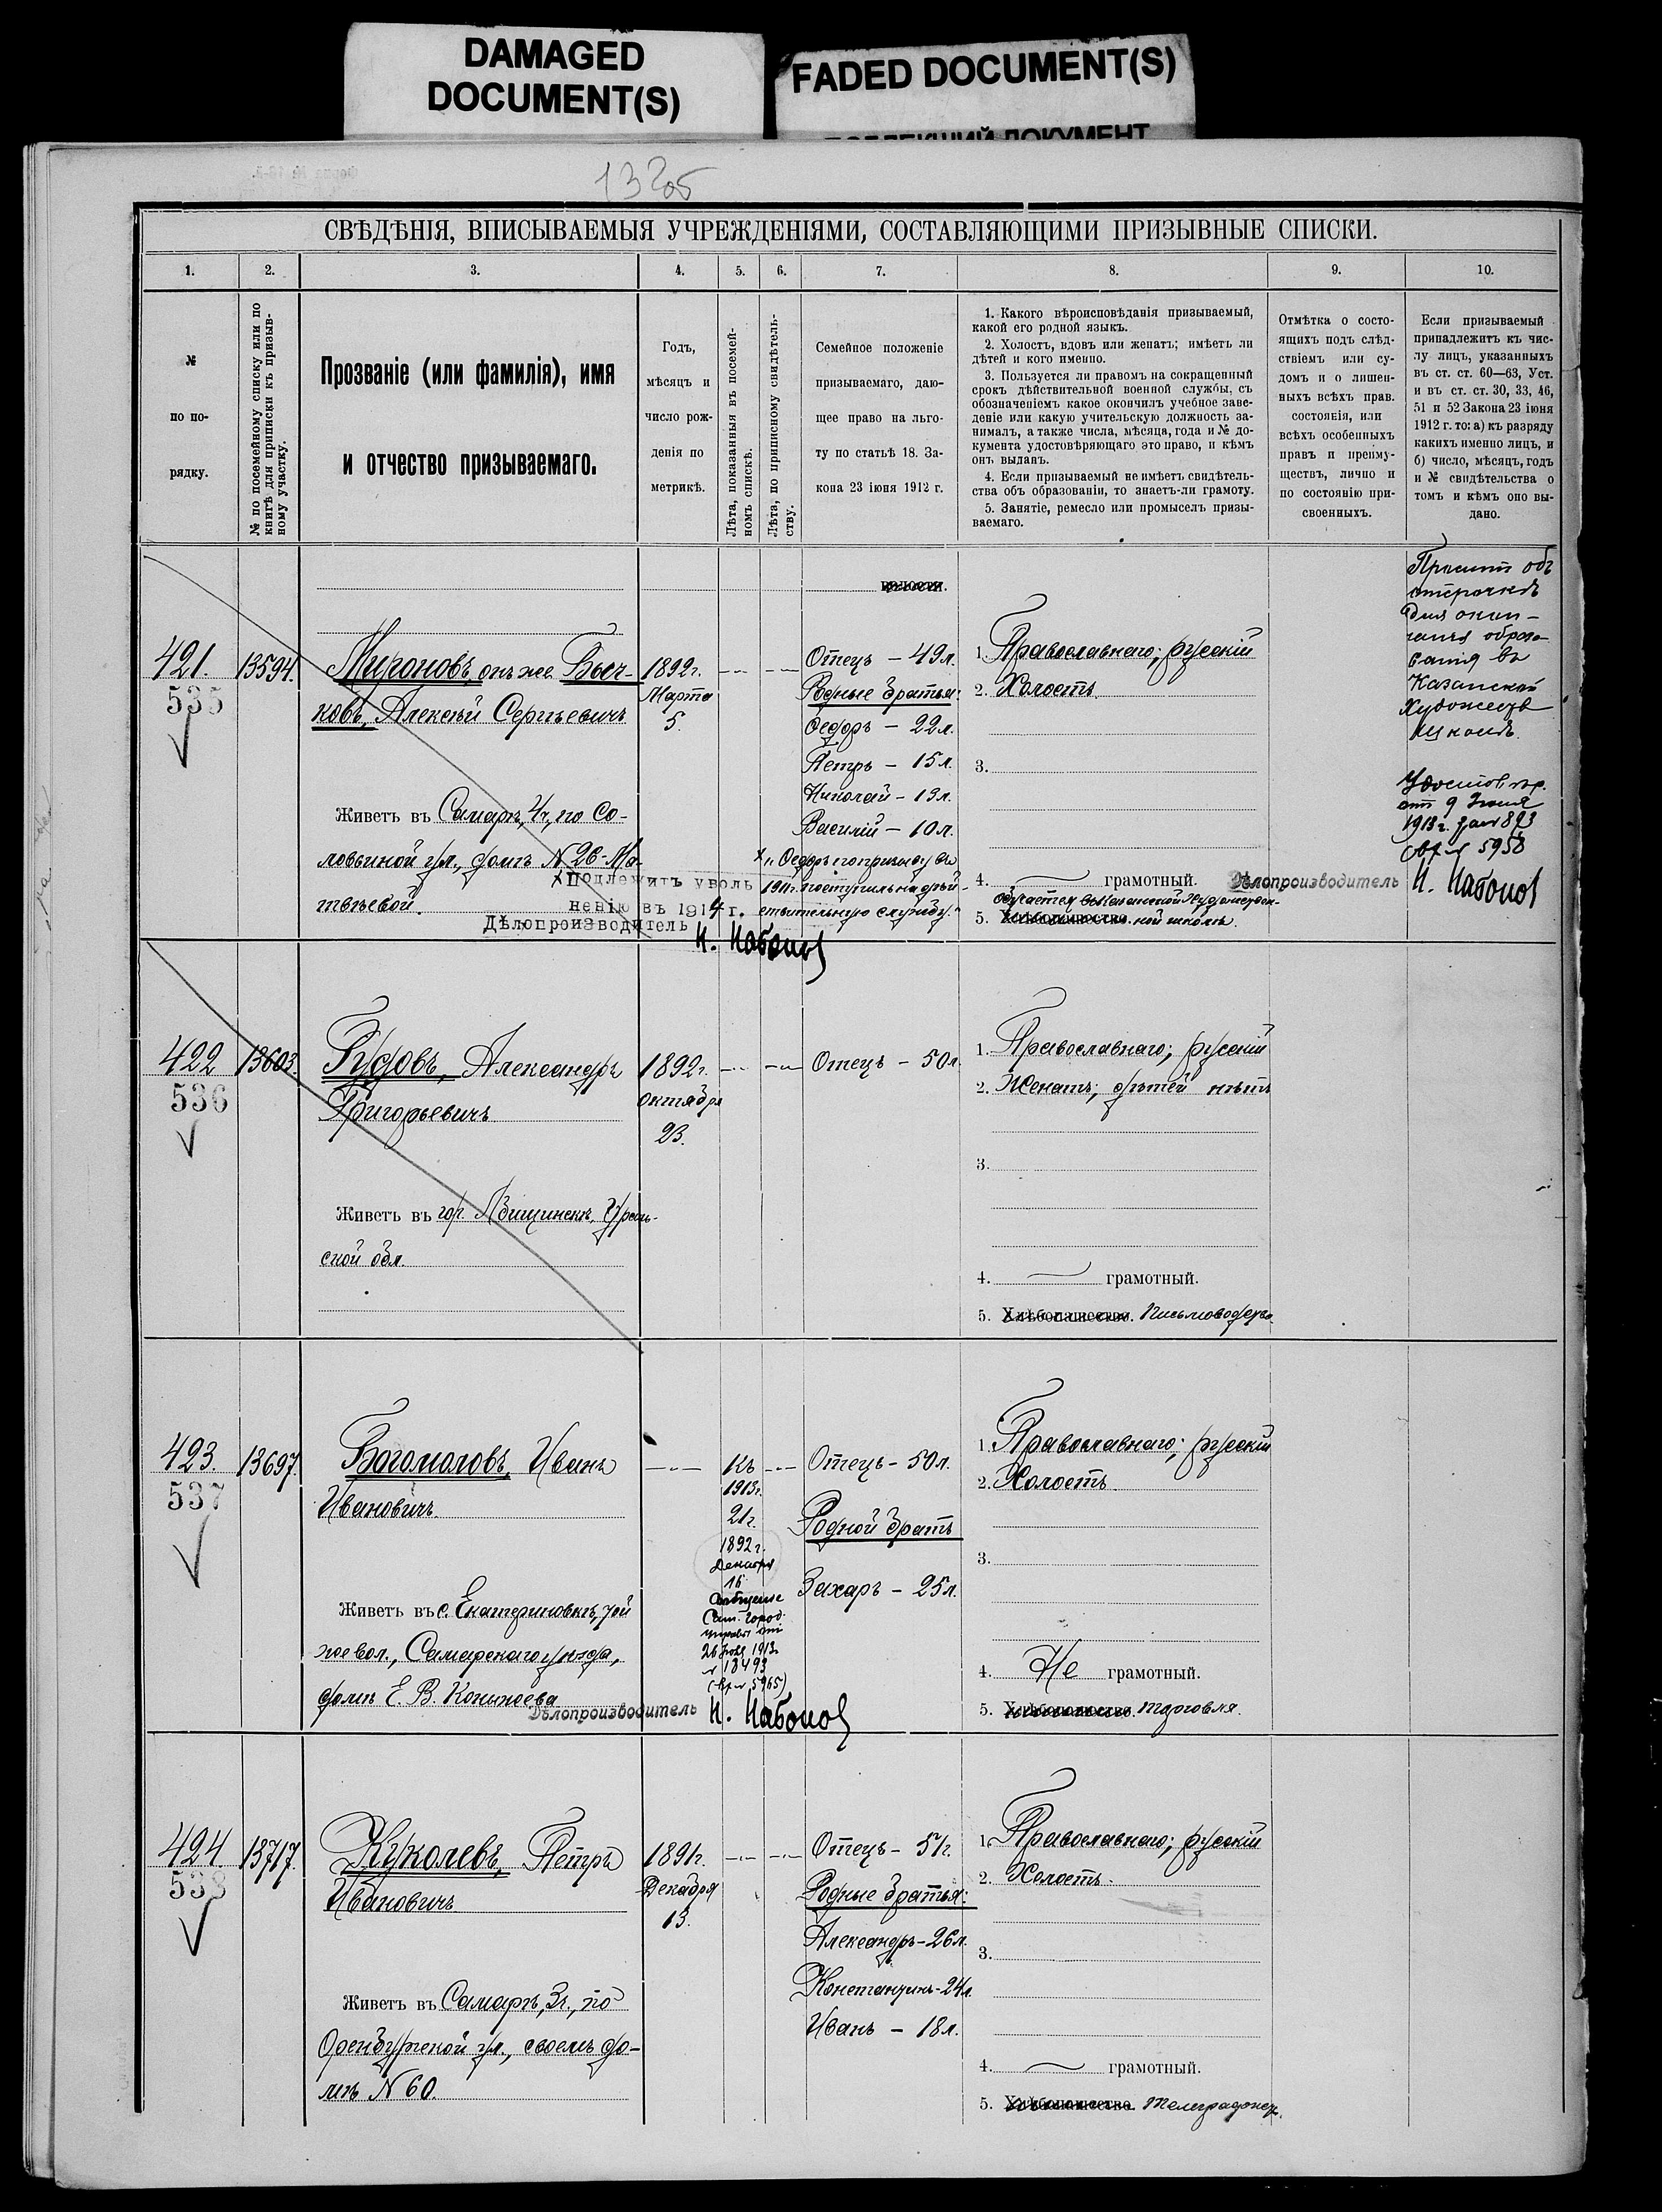 DAMAGED
DOCUMENT(S)
FADED DOCUMENT(S)
132об
СВѢДѢНІЯ, ВПИСЫВАЕМЫЯ УЧРЕЖДЕНІЯМИ, СОСТАВЛЯЮЩИМИ ПРИЗЫВНЫЕ СПИСКИ.
1.
2.
3.
4.
5.
6.
7.
8.
9.
10.
№
по по-
рядку.
№ по посемейному списку или по
книгѣ для приписки къ призыв-
ному участку.
Прозваніе (или фамилія), имя
и отчество призываемаго.
Годъ,
мѣсяцъ и
число рож-
денія по
метрикѣ.
Лѣта, показанныя въ посемей-
номъ спискѣ.
Лѣта, по приписному свидѣтель-
ству.
Семейное положеніе
призываемаго, даю-
щее право на льго-
ту по статьѣ 18. За-
кона 23 іюня 1912 г.
1. Какого вѣроисповѣданія призываемый,
какой его родной языкъ.
2. Холостъ, вдовъ или женатъ; имѣетъ ли
дѣтей и кого именно.
3. Пользуется ли правомъ на сокращенный
срокъ дѣйствительной военной службы, съ
обозначеніемъ какое окончилъ учебное заве-
деніе или какую учительскую должность за-
нималъ, а также числа, мѣсяца, года и № до-
кумента удостовѣряющаго это право, и кѣмъ
онъ выданъ.
4. Если призываемый не имѣетъ свидѣтель-
ства объ образованіи, то знаетъ-ли грамоту.
5. Занятіе, ремесло или промыселъ призы-
ваемаго.
Отмѣтка о состо-
ящихъ подъ слѣд-
ствіемъ или су-
домъ и о лишен-
ныхъ всѣхъ прав.
состоянія, или
всѣхъ особенныхъ
правъ и преиму-
ществъ, лично и
по состоянію при-
своенныхъ.
Если призываемый
принадлежитъ къ чис-
лу лицъ, указанныхъ
въ ст. ст. 60—63, Уст.
и въ ст. ст. 30, 33, 46,
51 и 52 Закона 23 іюня
1912 г. то: а) къ разряду
какихъ именно лицъ, и
б) число, мѣсяцъ, годъ
и № свидѣтельства о
томъ и кѣмъ оно вы-
дано.
421.
535
13594.
Мироновъ, онъ же Быч-
ковъ, Алексѣй Сергѣевичъ
Живетъ въ Самарѣ, 4ч., по Со-
ловьиной ул., домъ №26-Ма-
твѣевой.
×Подлежитъ уволь
ненію въ 1914 г.
Дѣлопроизводитель Н. Набоков
1892г.
Марта
5.
волости.
Отецъ – 49л.
Родные братья:
Ѳедоръ – 22л.
Петръ – 15л.
Николай – 13л.
Василій – 10л.
×„Ѳедоръ по призыву въ
1911г. поступилъ на дѣй-
ствительную службу."
1. Православнаго; русскій
2. Холостъ.
3.
4. грамотный.
обучается въ Казанской Художествен-
5. Хлѣбопашество. ной школѣ.
Проситъ объ
отсрочкѣ
для окон-
чанія образо-
ванія въ
Казанской
Художеств
школѣ.
Удостовѣр.
отъ 9 Іюня
1913г. за № 893
5958
Дѣлопроизводитель Н. Набоков
422
536
13603.
Рудовъ, Александръ
Григорьевичъ
Живетъ въ гор. Лбищинскѣ, Ураль-
ской обл.
1892г.
Октября
23.
Отецъ – 50л.
1. Православнаго; русскій
2. Женатъ; дѣтей нѣтъ
3.
4. грамотный.
5. Хлѣбопашество. Письмоводств.
423.
537
13697.
Богомоловъ, Иванъ
Ивановичъ.
Живетъ въ с. Екатериновкѣ, той
же вол., Самарскаго уѣзда,
домъ Е. В. Конькоева
Къ
1913г.
21г.
1892г.
Декабря
16
Сообщеніе
Сам. Город.
Управы отъ
1913
№ 18493
5965)
Дѣлопроизводитель Н. Набоков
Отецъ – 50л.
Родной братъ
Захаръ – 25л.
1. Православнаго; русскій
2. Холостъ.
3.
4. Не грамотный.
5. Хлѣбопашество. Торговля.
424.
538
13717.
Куколевъ, Петръ
Ивановичъ
Живетъ въ Самарѣ, 3ч., по
Оренбургской ул., своемъ до-
мѣ №60.
1891г.
Декабря
13.
Отецъ – 51г.
Родные братья:
Александръ – 26л.
Константинъ – 24л.
Иванъ – 18л.
1. Православнаго; русскій
2. Холостъ.
3.
4. грамотный.
5. Хлѣбопашество. Телеграфистъ.